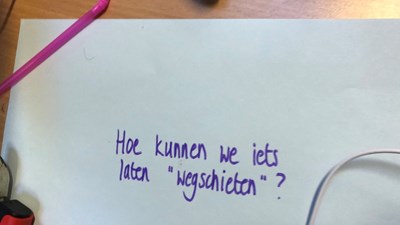 Hoe kunnen we iets
laten "wegschieten"?